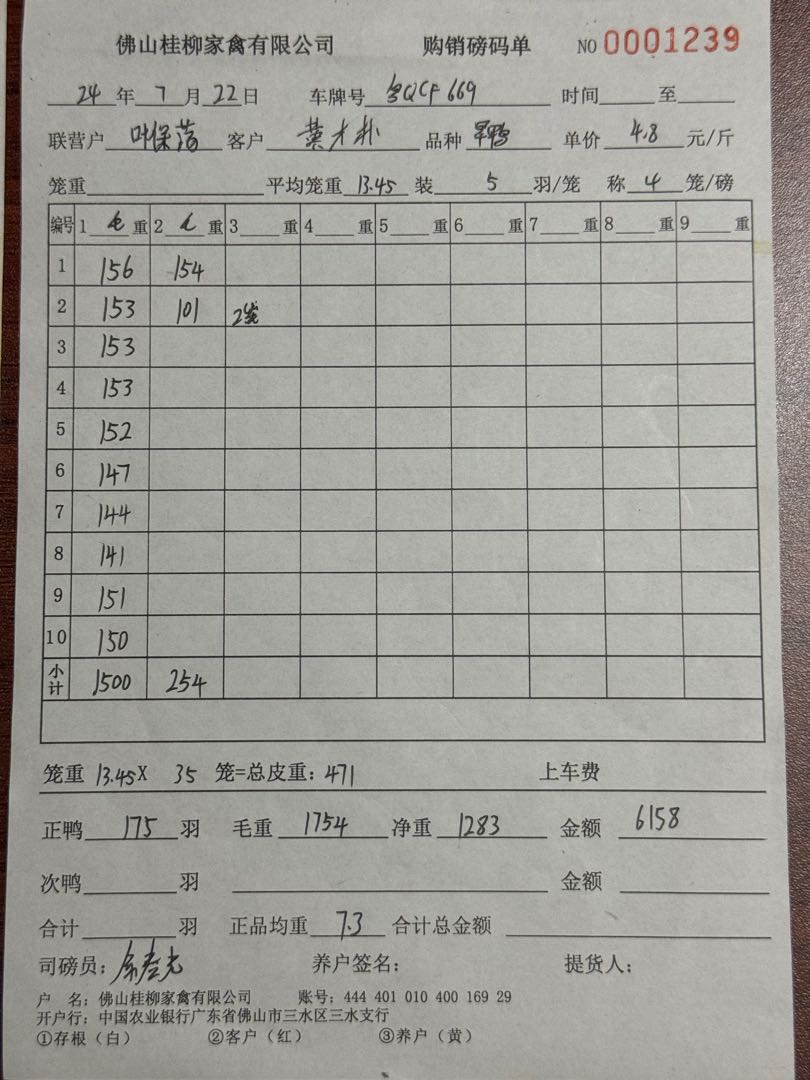 佛山桂柳家禽有限公司 购销磅码单 NO 0001239
24 年 7 月 22 日 车牌号 QCF669 时间 至
联营户 叶保 客户 黄才朴 品种 旱鸭 单价 4.8 元/斤
笼重 平均笼重 13.45 装 5 羽/笼 称 4 笼/磅
编号 1 重 2 重 3 重 4 重 5 重 6 重 7 重 8 重 9 重
1 156 154
2 153 101 2
3 153
4 153
5 152
6 147
7 144
8 141
9 151
10 150
小计 1500 254
笼重 13.45X 35 笼=总皮重: 471 上车费
正鸭 175 羽 毛重 1754 净重 1283 金额 6158
次鸭 羽 金额
合计 羽 正品均重 7.3 合计总金额
司磅员: 养户签名: 提货人:
户 名: 佛山桂柳家禽有限公司 账号: 444 401 010 400 169 29
开户行: 中国农业银行广东省佛山市三水区三水支行
①存根(白) ②客户(红) ③养户(黄)